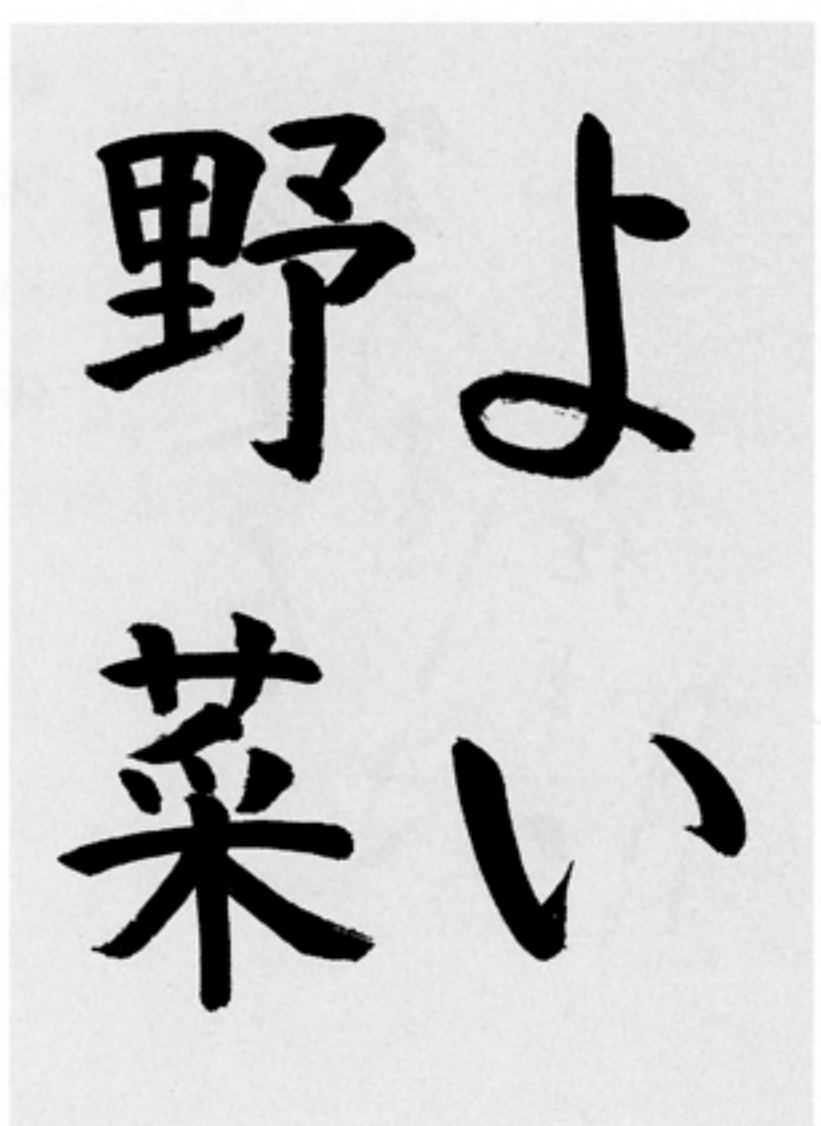 よい
野菜